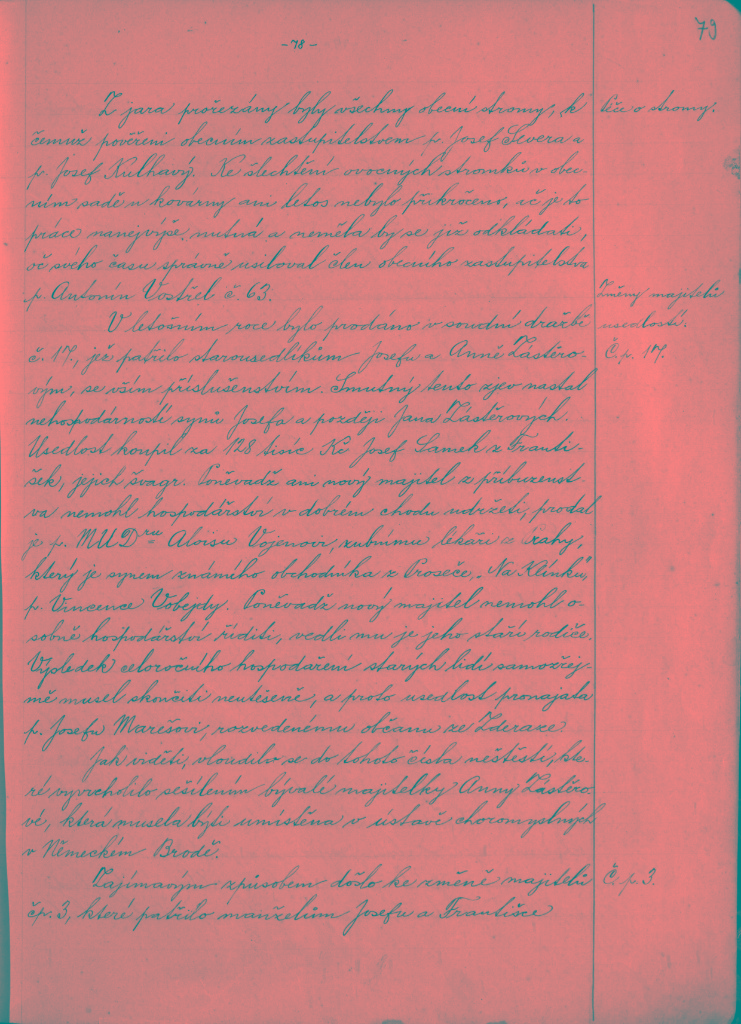 79
- 78 -
Z jara prořezány byly všechny obecní stromy, k
čemuž pověřeni obecním zastupitelstvem p. Josef Severa a
p. Josef Kulhavý. Ke šlechtění ovocných stromků v obec-
ním sadě u kovárny ani letos nebylo přikročeno, ač je to
práce nanejvýše nutná a neměla by se již odkládati,
oč svého času správně usiloval člen obecního zastupitelstva
p. Antonín Vostřel č. 63.
Péče o stromy.
V letošním roce bylo prodáno v soudní dražbě
č. 17., jež patřilo starousedlíkům Josefu a Anně Zástěro-
vým, se vším příslušenstvím. Smutný tento zjev nastal
nehospodárností synů Josefa a později Jana Zástěrových.
Usedlost koupil za 128 tisíc Kč Josef Samek z Franti-
šek, jejich švagr. Poněvadž ani nový majitel z příbuzenst-
va nemohl hospodářství v dobrém chodu udržeti, prodal
je p. MUDru Aloisu Vojenovi, zubnímu lékaři z Prahy,
který je synem známého obchodníka z Proseče „Na Klínku"
p. Vincence Vobejdy. Poněvadž nový majitel nemohl o-
sobně hospodářství říditi, vedli mu je jeho staří rodiče.
Výsledek celoročního hospodaření starých lidí samozřej-
mě musel skončiti neutěšeně, a proto usedlost pronajata
p. Josefu Marešovi, rozvedenému občanu ze Zderaze.
Změny majitelů
usedlostí.
Č. p. 17.
Jak viděti, vloudilo se do tohoto čísla neštěstí, kte-
ré vyvrcholilo sešílením bývalé majitelky Anny Zástěro-
vé, která musela býti umístěna v ústavě choromyslných
v Německém Brodě.
Zajímavým způsobem došlo ke změně majitelů
čp. 3, které patřilo manželům Josefu a Františce
Č. p. 3.